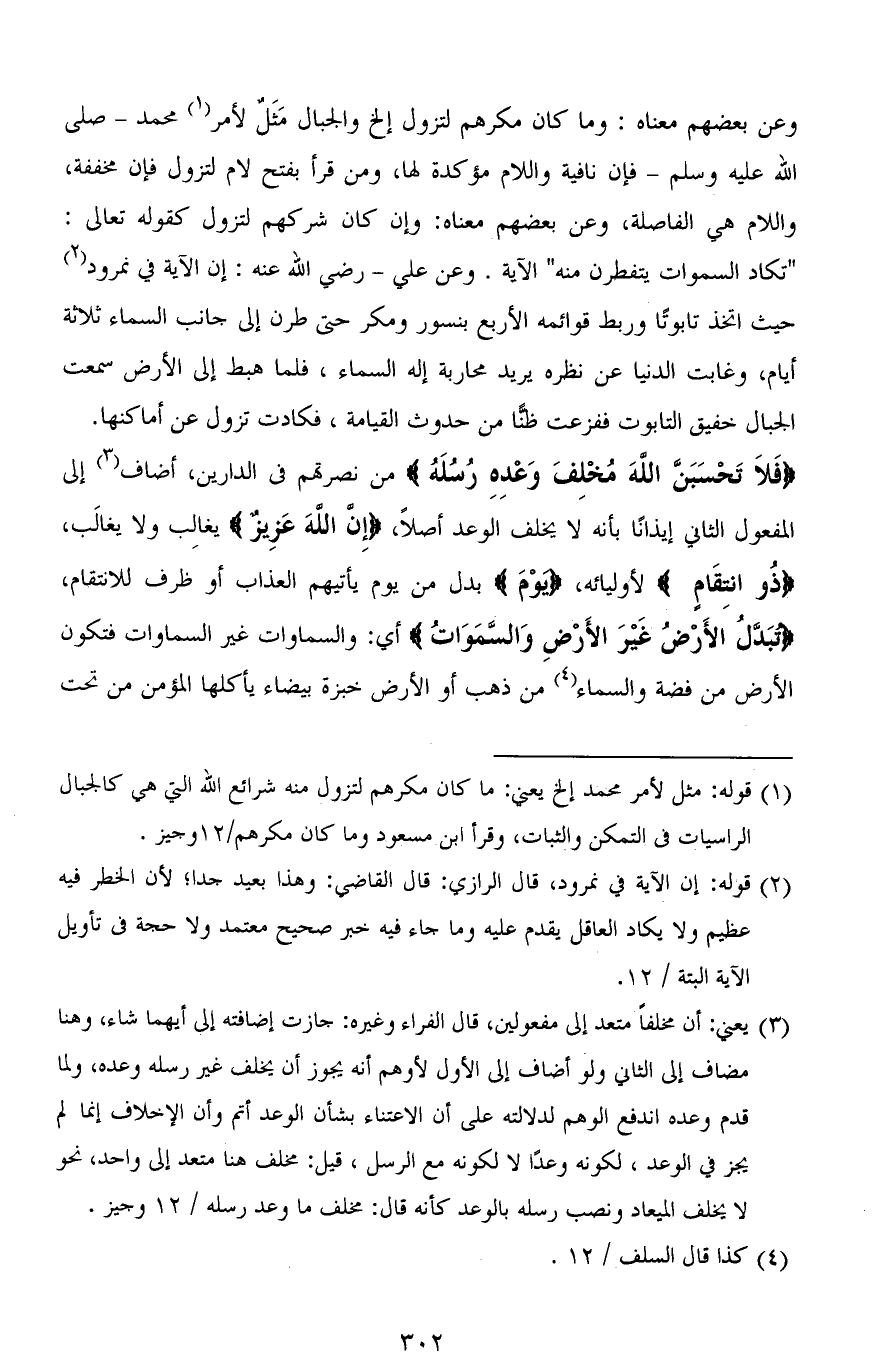 وعن بعضهم معناه : وما كان مكرهم لتزول إلخ والجبال مَثَلٌ لأمر(١) محمد – صلى
الله عليه وسلم – فإن نافية واللام مؤكدة لها، ومن قرأ بفتح لام لتزول فإن مخففة،
واللام هي الفاصلة، وعن بعضهم معناه: وإن كان شركهم لتزول كقوله تعالى :
"تكاد السموات يتفطرن منه" الآية . وعن علي – رضي الله عنه : إن الآية في نمرود(٢)
حيث اتخذ تابوتًا وربط قوائمه الأربع بنسور ومكر حتى طرن إلى جانب السماء ثلاثة
أيام، وغابت الدنيا عن نظره يريد محاربة إله السماء ، فلما هبط إلى الأرض سمعت
الجبال خفيق التابوت ففزعت ظنًّا من حدوث القيامة ، فكادت تزول عن أماكنها.
﴿فَلاَ تَحْسَبَنَّ اللَّهَ مُخْلِفَ وَعْدِهِ رُسُلَهُ ﴾ من نصرتهم فى الدارين، أضاف(٣) إلى
المفعول الثاني إيذانًا بأنه لا يخلف الوعد أصلاً، ﴿إِنَّ اللَّهَ عَزِيزٌ ﴾ يغالِب ولا يغالَب،
﴿ذُو انتِقَامٍ ﴾ لأوليائه، ﴿يَوْمَ ﴾ بدل من يوم يأتيهم العذاب أو ظرف للانتقام،
﴿تُبَدَّلُ الأَرْضُ غَيْرَ الأَرْضِ وَالسَّمَوَاتُ ﴾ أي: والسماوات غير السماوات فتكون
الأرض من فضة والسماء(٤) من ذهب أو الأرض خبزة بيضاء يأكلها المؤمن من تحت
(١) قوله: مثل لأمر محمد إلخ يعني: ما كان مكرهم لتزول منه شرائع الله التي هي كالجبال
الراسيات فى التمكن والثبات، وقرأ ابن مسعود وما كان مكرهم/١٢وجيز .
(٢) قوله: إن الآية في نمرود، قال الرازي: قال القاضي: وهذا بعيد جدا؛ لأن الخطر فيه
عظيم ولا يكاد العاقل يقدم عليه وما جاء فيه خبر صحيح معتمد ولا حجة فى تأويل
الآية البتة / ١٢.
(٣) يعني: أن مخلفاً متعد إلى مفعولين، قال الفراء وغيره: جازت إضافته إلى أيهما شاء، وهنا
مضاف إلى الثاني ولو أضاف إلى الأول لأوهم أنه يجوز أن يخلف غير رسله وعده، ولما
قدم وعده اندفع الوهم لدلالته على أن الاعتناء بشأن الوعد أتم وأن الإخلاف إنما لم
يجز في الوعد ، لكونه وعدًا لا لكونه مع الرسل ، قيل: مخلف هنا متعد إلى واحد، نحو
لا يخلف الميعاد ونصب رسله بالوعد كأنه قال: مخلف ما وعد رسله / ١٢ وجيز .
(٤) كذا قال السلف / ١٢ .
٣٠٢